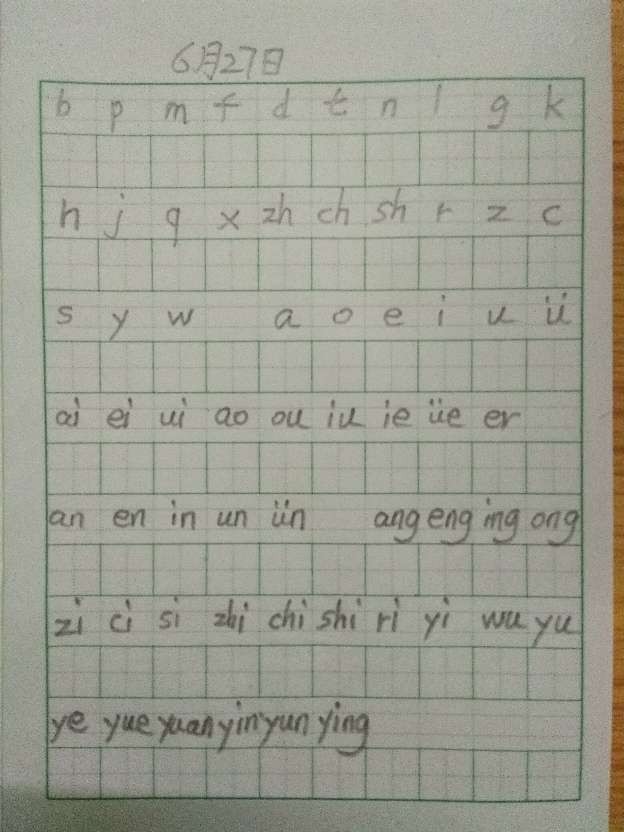 6月27日
b p m f d t n l g k
h j q x zh ch sh r z c
s y w a o e i u ü
ai ei ui ao ou iu ie üe er
an en in un ün ang eng ing ong
zi ci si zhi chi shi ri yi wu yu
ye yue yuan yin yun ying